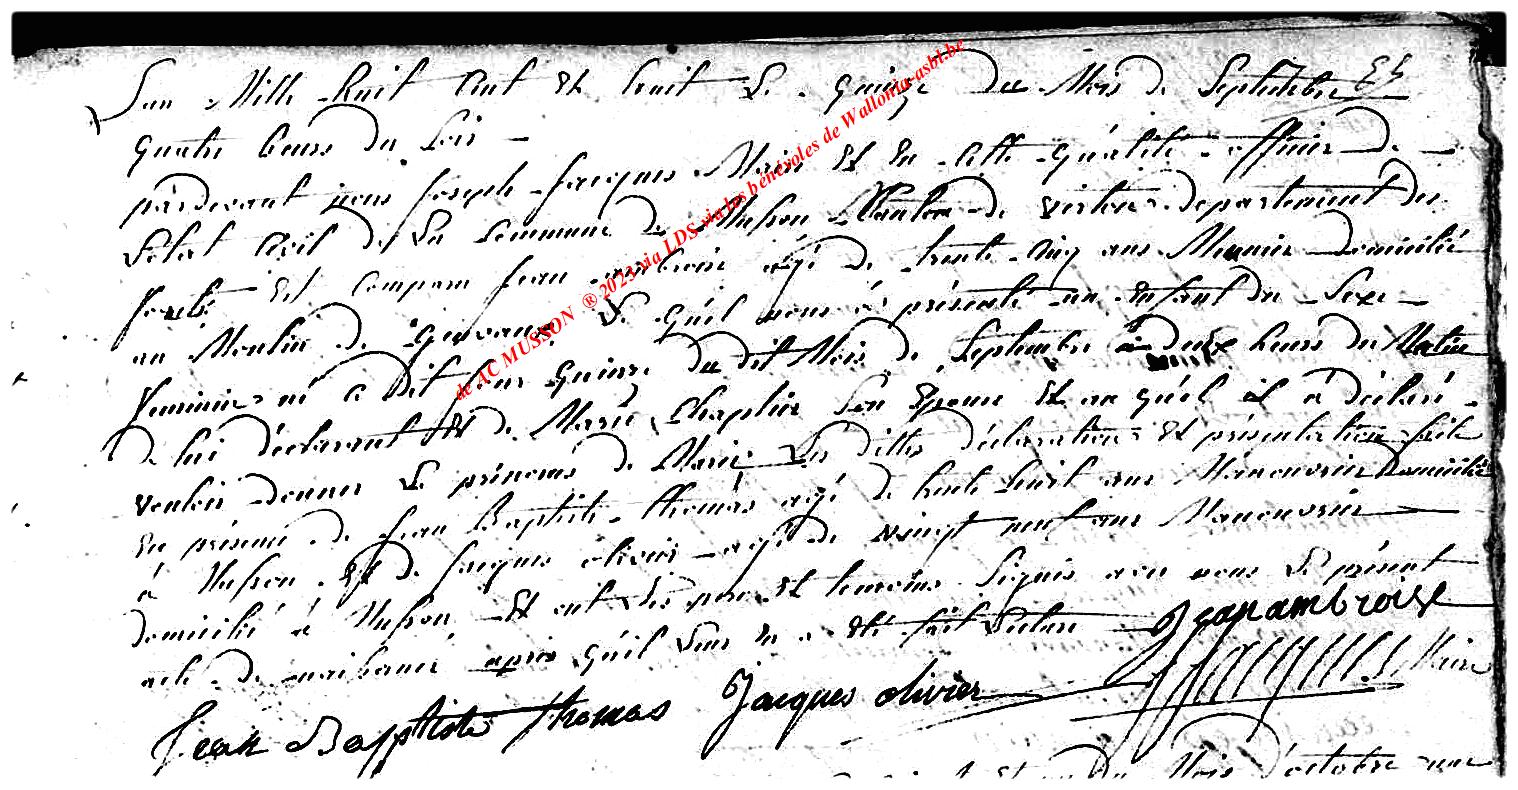 L'an Mille huit Cent Et huit Le Quinze du Mois de Septembre Et
quatre heures du soir
pardevant nous Joseph Jacques Maire Et En Cette Qualité officier de
L'etat Civil de La Commune de Musson Canton de virton departement des
forets Est Comparu Jean ambroise agé de trente Cinq ans Meunier domicilié
au Moulin de Gevaux Le Quel nous a présenté un Enfant du Sexe
feminin né Ce dit jour Quinze du dit Mois de Septembre à deux heures du Matin
de lui déclarant Et de Marie Chaplier Son Epouse Et au quel il a déclaré
vouloir donner Le prénoms de Marie Les dittes déclaration Et présentation faite
En présence de Jean Baptiste thomas agé de trente huit ans Manouvrier Domicilié
à Musson Et de Jacques olivier agé de vingt neuf ans Manouvrier
domicilié à Musson Et ont Les pere Et temoins Signés avec nous Le présent
acte de naissance après qu'il Leur En a Eté fait Lecture Jean ambroise
Jean Baptiste thomas Jacques olivier JJacques Maire
du Mois d'octobre
de AC MUSSON ® 2023 via LDS via les bénévoles de Wallonia-asbl.be